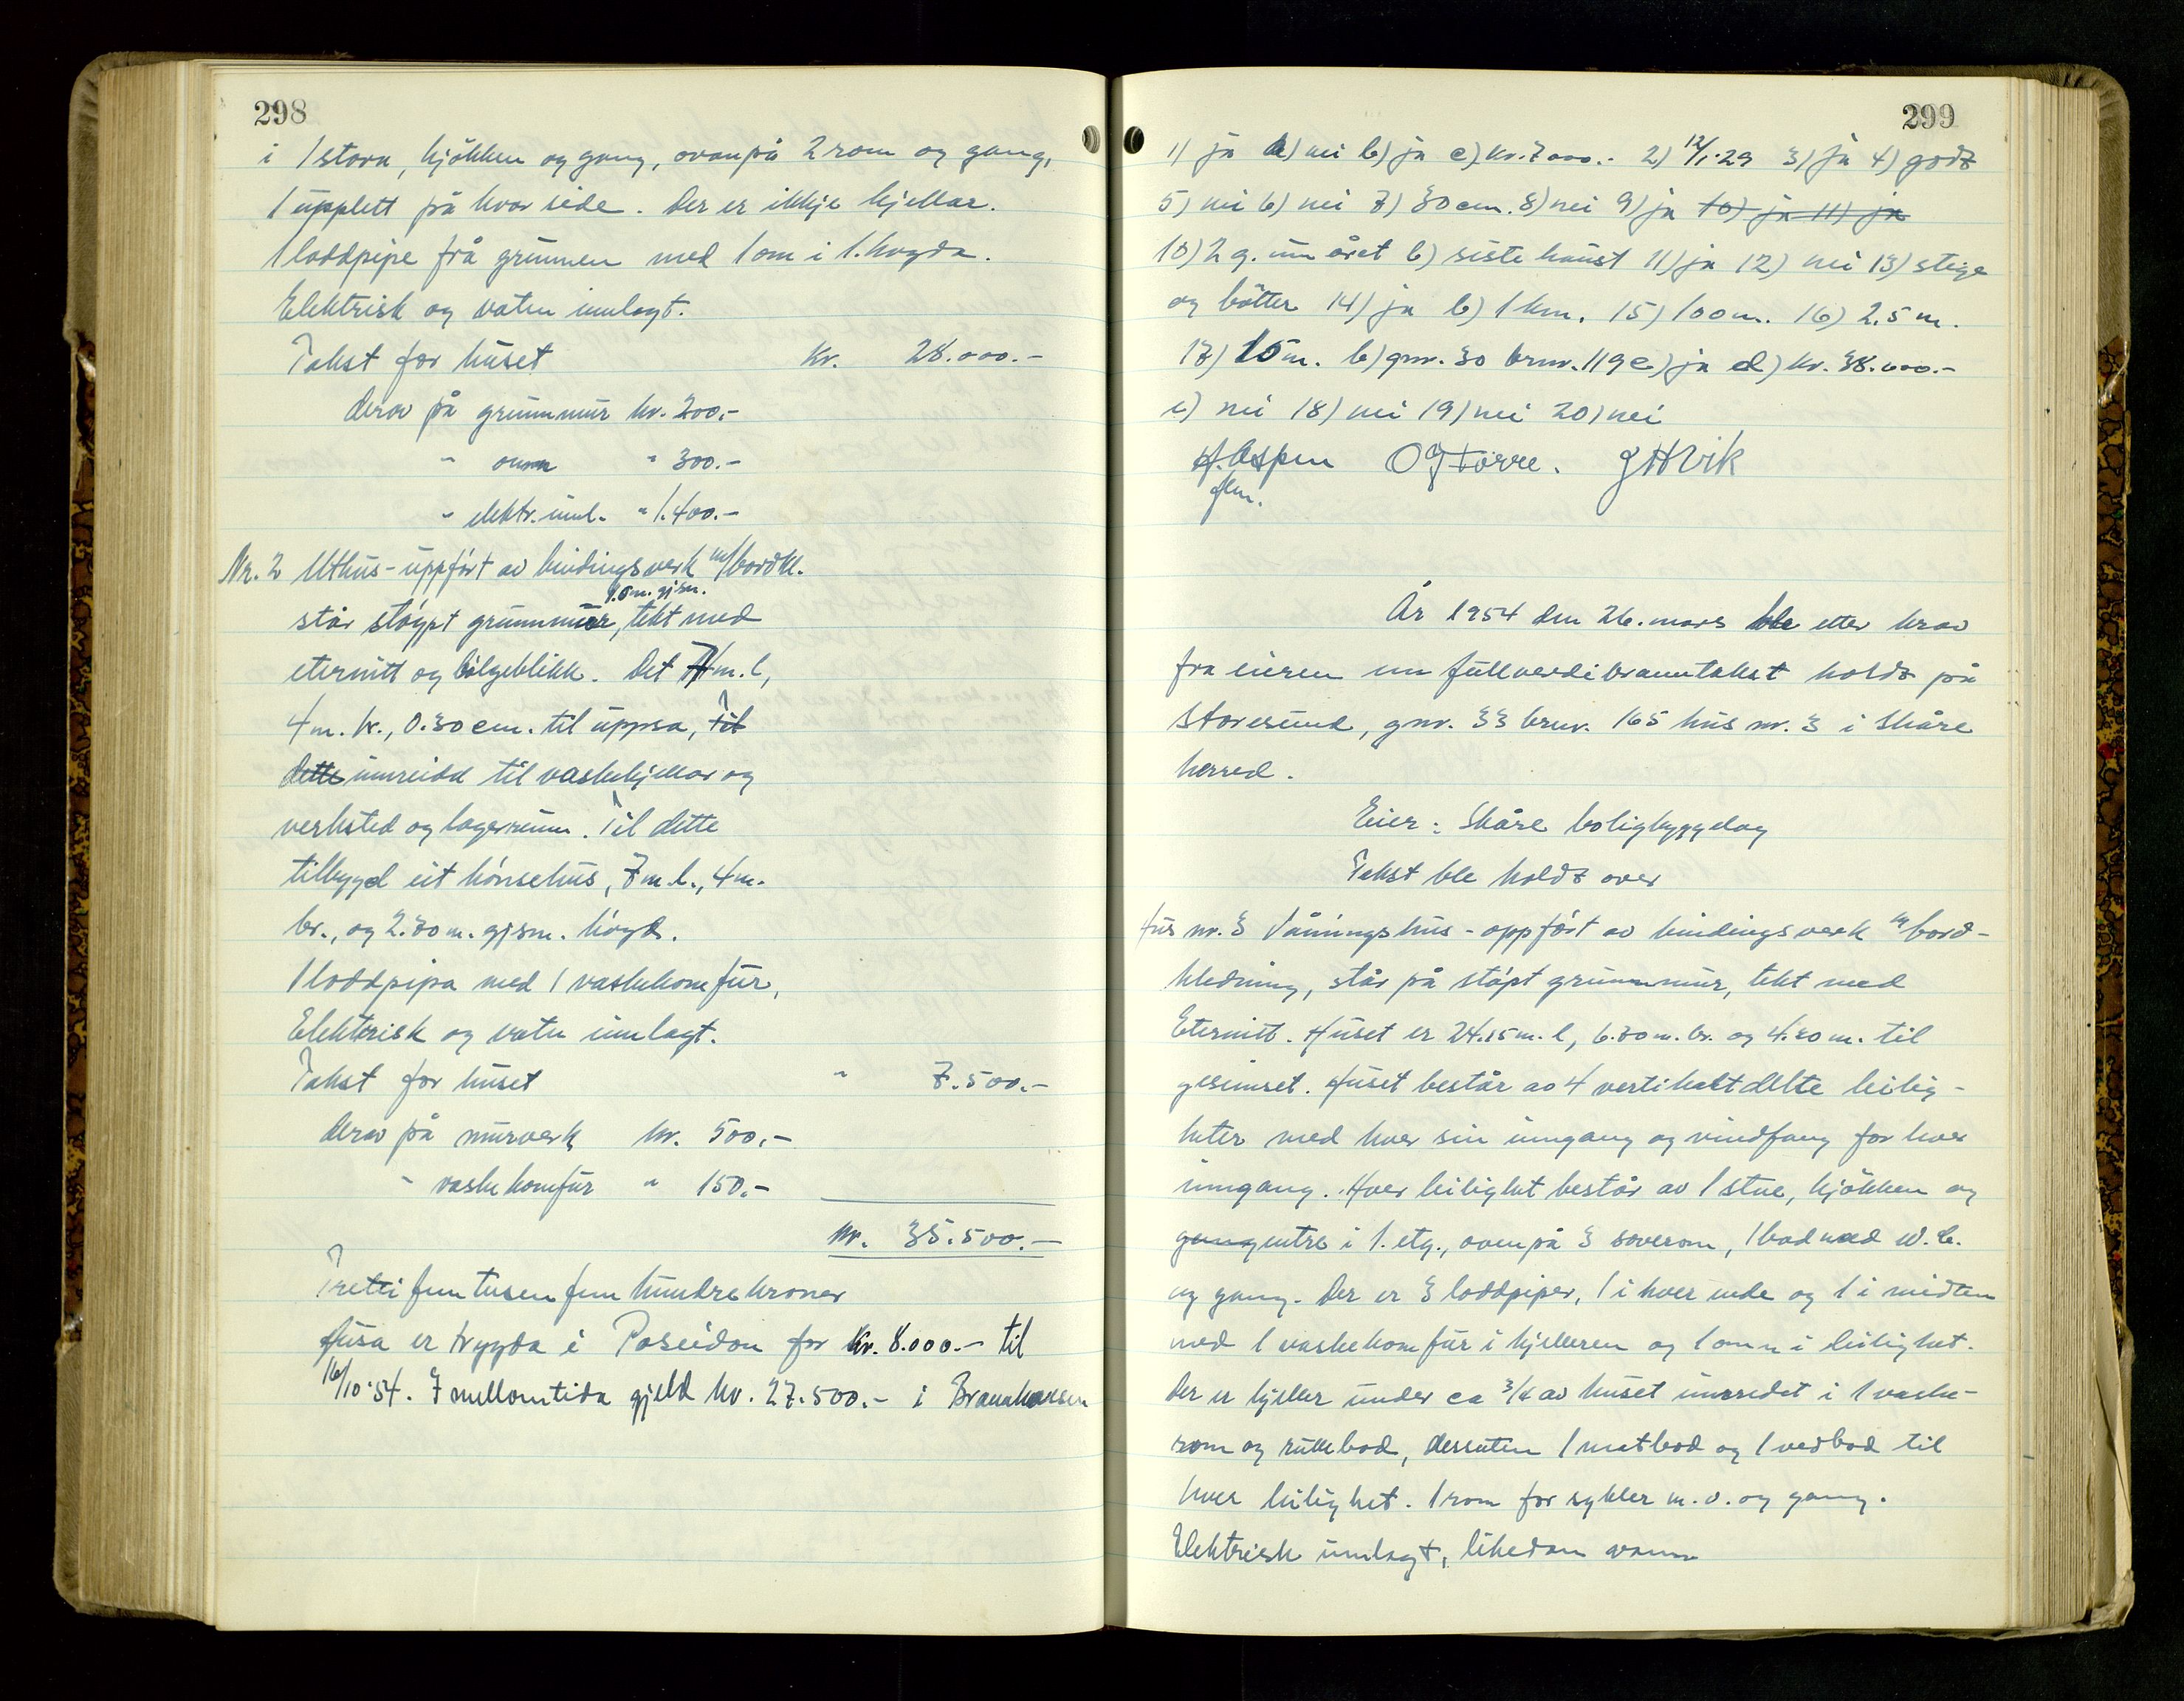 298
i 1 stova, kjøkken og gang, ovanpå 2 rom og gang,
1 upplett på kvar side. Der er ikkje kjellar.
1 loddpipe frå grunnen med 1 om i 1. høgda.
Elektrisk og vatn innlagt.
Takst for huset kr. 28.000.-
derav på grunnmur kr. 200.-
" " 300.-
" elektr. innl. " 1.400.-
Nr. 2 Uthus - uppført av bindingsverk m/bordkl.
1.0 m. gjsn.
står støypt grunnmur, tekt med
eternitt og bølgeblikk. Det m. l,
4 m. br., 0.30 cm. til uppsa, Til
dette innreidd til vaskekjellar og
verksted og lagerrum. Til dette
tilbygd eit hønsehus, 7 m. l., 4 m.
br., og 2.80 m. gjsm. høgd.
1 loddpipa med 1 vaskekomfur,
Elektrisk og vatn innlagt.
Takst for huset " 7.500.-
derav på murverk kr. 500.-
" vaskekomfur " 150.-
kr. 35.500.-
Tretti fem tusen fem hundre kroner
Husa er trygda i Poseidon for kr. 8.000.- til
16/10-54. I mellomtida gjeld kr. 27.500.- i Brannkassen
299
1) ja a) nei b) ja c) kr. 7000.- 2) 12/1-29 3) ja 4) godt
5) nei 6) nei 7) 30 cm. 8) nei 9) ja 10) ja 11) ja
10) 2 g. um året b) siste haust 11) ja 12) nei 13) stige
og bøtter 14) ja b) 1 km. 15) 100 m. 16) 2.5 m.
17) 15 m. b) gnr. 30 brnr. 119 c) ja d) kr. 38.000.-
e) nei 18) nei 19) nei 20) nei
A. Aspen O G Førre. J H Vik
flm.
År 1954 den 26. mars ble etter krav
fra eieren en fullverdibranntakst holdt på
Storesund, gnr. 33 brnr. 165 hus nr. 3 i Skåre
herred.
Eier: Skåre boligbyggelag
Takst ble holdt over
Hus nr. 3 Våningshus - oppført av bindingsverk m/bord-
kledning, står på støpt grunnmur, tekt med
Eternitt. Huset er 24.15 m. l, 6.80 m. br. og 4.80 m. til
gesimset. Huset består av 4 vertikalt delte leilig-
heter med hver sin inngang og vindfang for hver
inngang. Hver leilighet består av 1 stue, kjøkken og
gang entre i 1. etg., ovenpå 3 soverom, 1 bad med W.C.
og gang. Der er 3 loddpiper, 1 i hver ende og 1 i midten
med 1 vaskekomfur i kjelleren og 1 omn i leilighet.
Der er kjeller under ca 3/4 av huset innredet i 1 vaske-
rom og rullebod, dessuten 1 matbod og 1 vedbod til
hver leilighet. 1 rom for sykler m.v. og gang.
Elektrisk innlagt, likedan vann